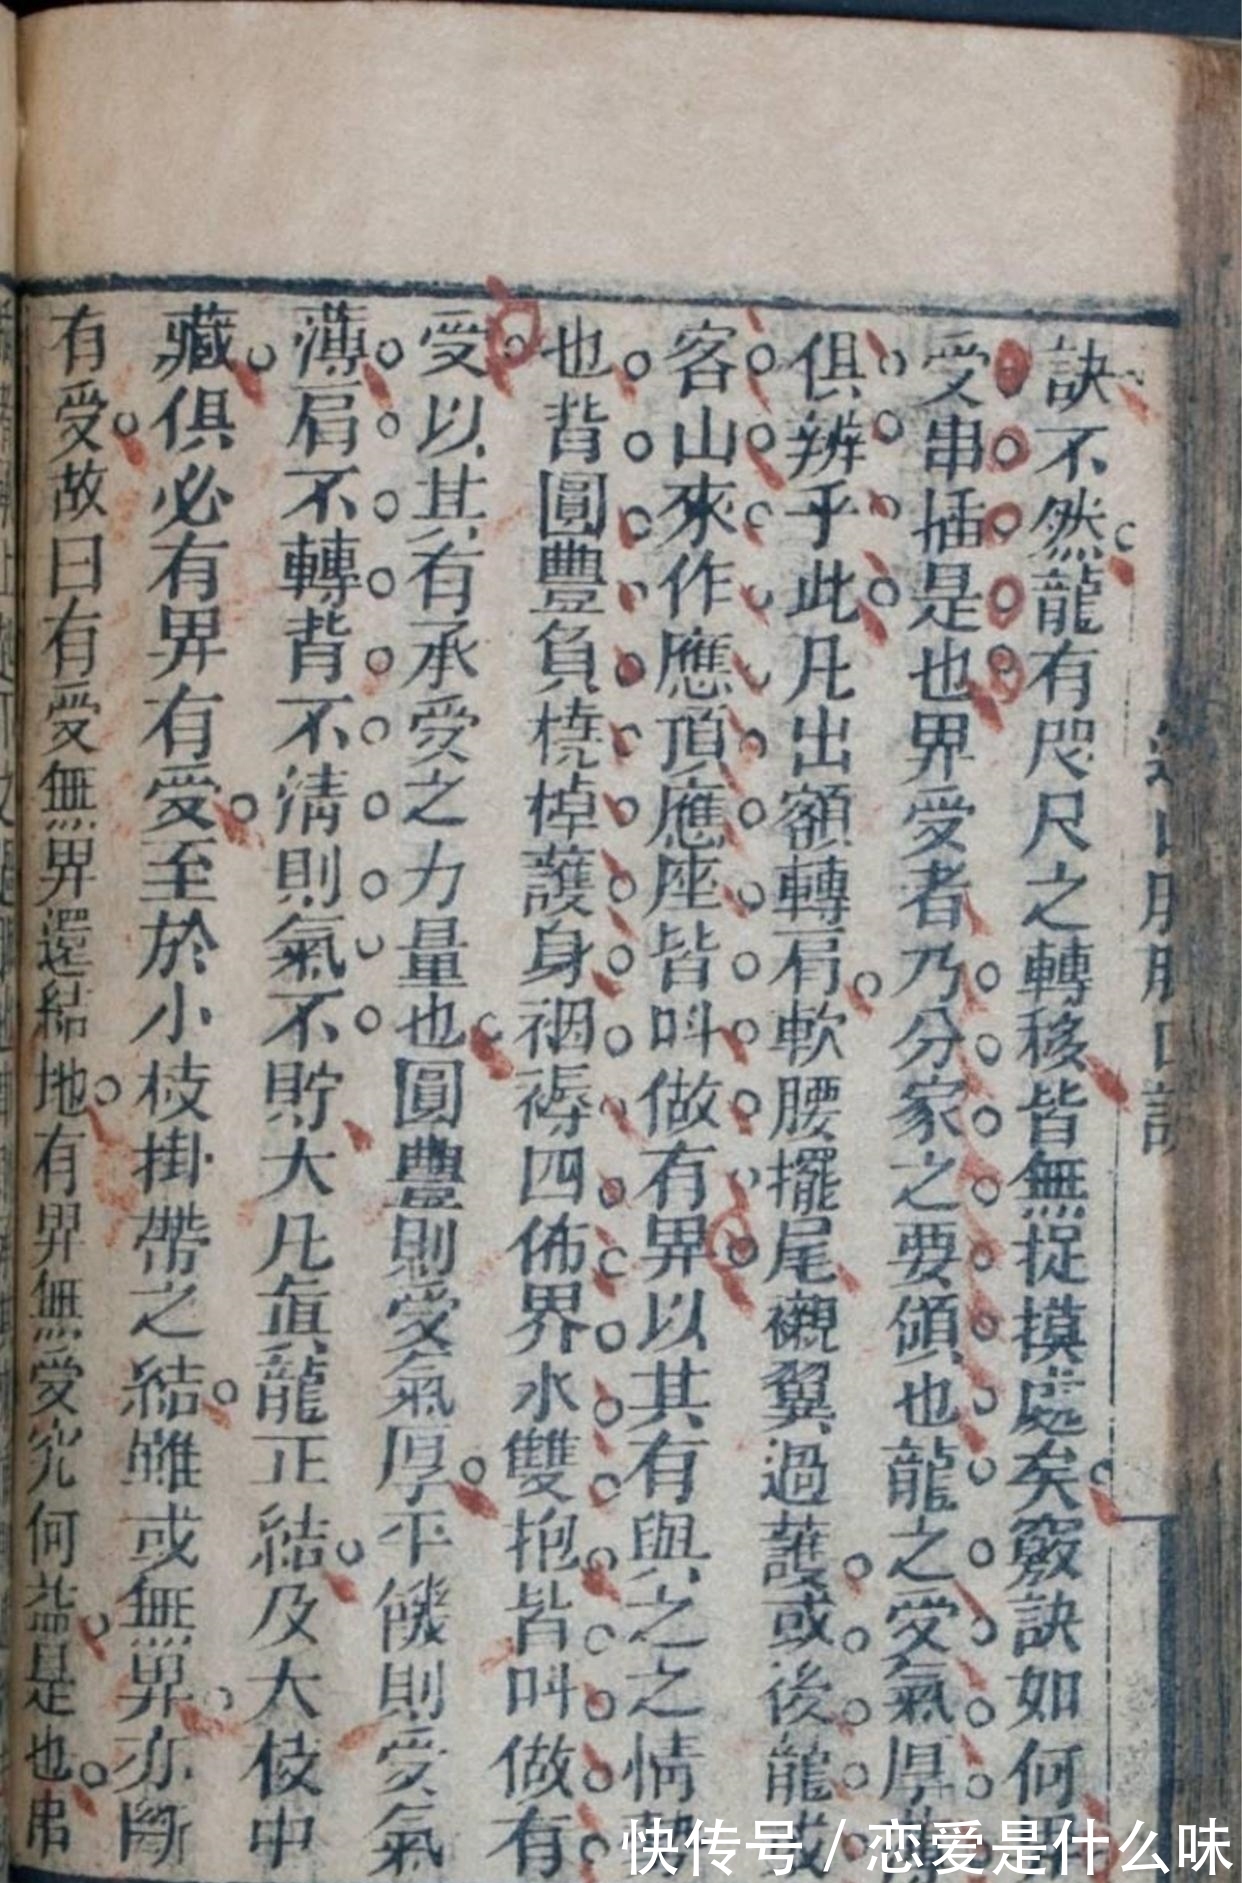 訣不然龍有咫尺之轉移皆無捉摸處矣竅訣如何
受串插是也界受者乃分家之要領也龍之受氣厚
俱辨乎此凡出額轉肩軟腰擺尾襯翼過護或後龍或
客山來作應頂應座皆叫做有界以其有與之之情
也背圓豊負橈棹護身裀褥四佈界水雙抱皆叫做有
受以其有承受之力量也圓豊則受氣厚平饑則受氣
薄肩不轉背不清則氣不貯大凡眞龍正結及大枝中
藏俱必有界有受至於小枝掛帶之結雖或無界亦斷
有受故曰有受無界還結地有界無受究何益是也串
快传号 / 恋爱是什么味